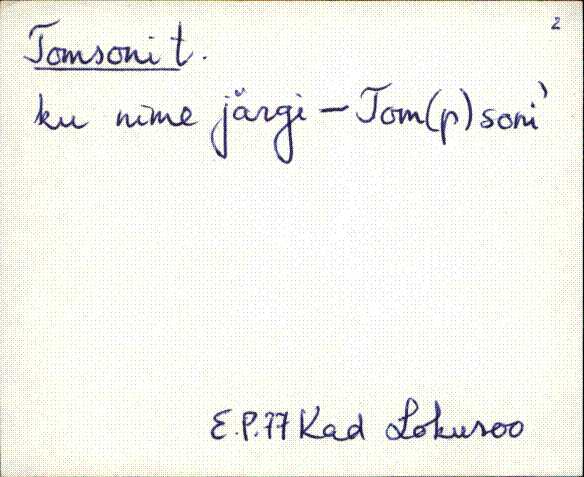 2
Tomsoni t.
ku nime järgi – Tom(p)soni`
E.P.77 Kad Lokusoo